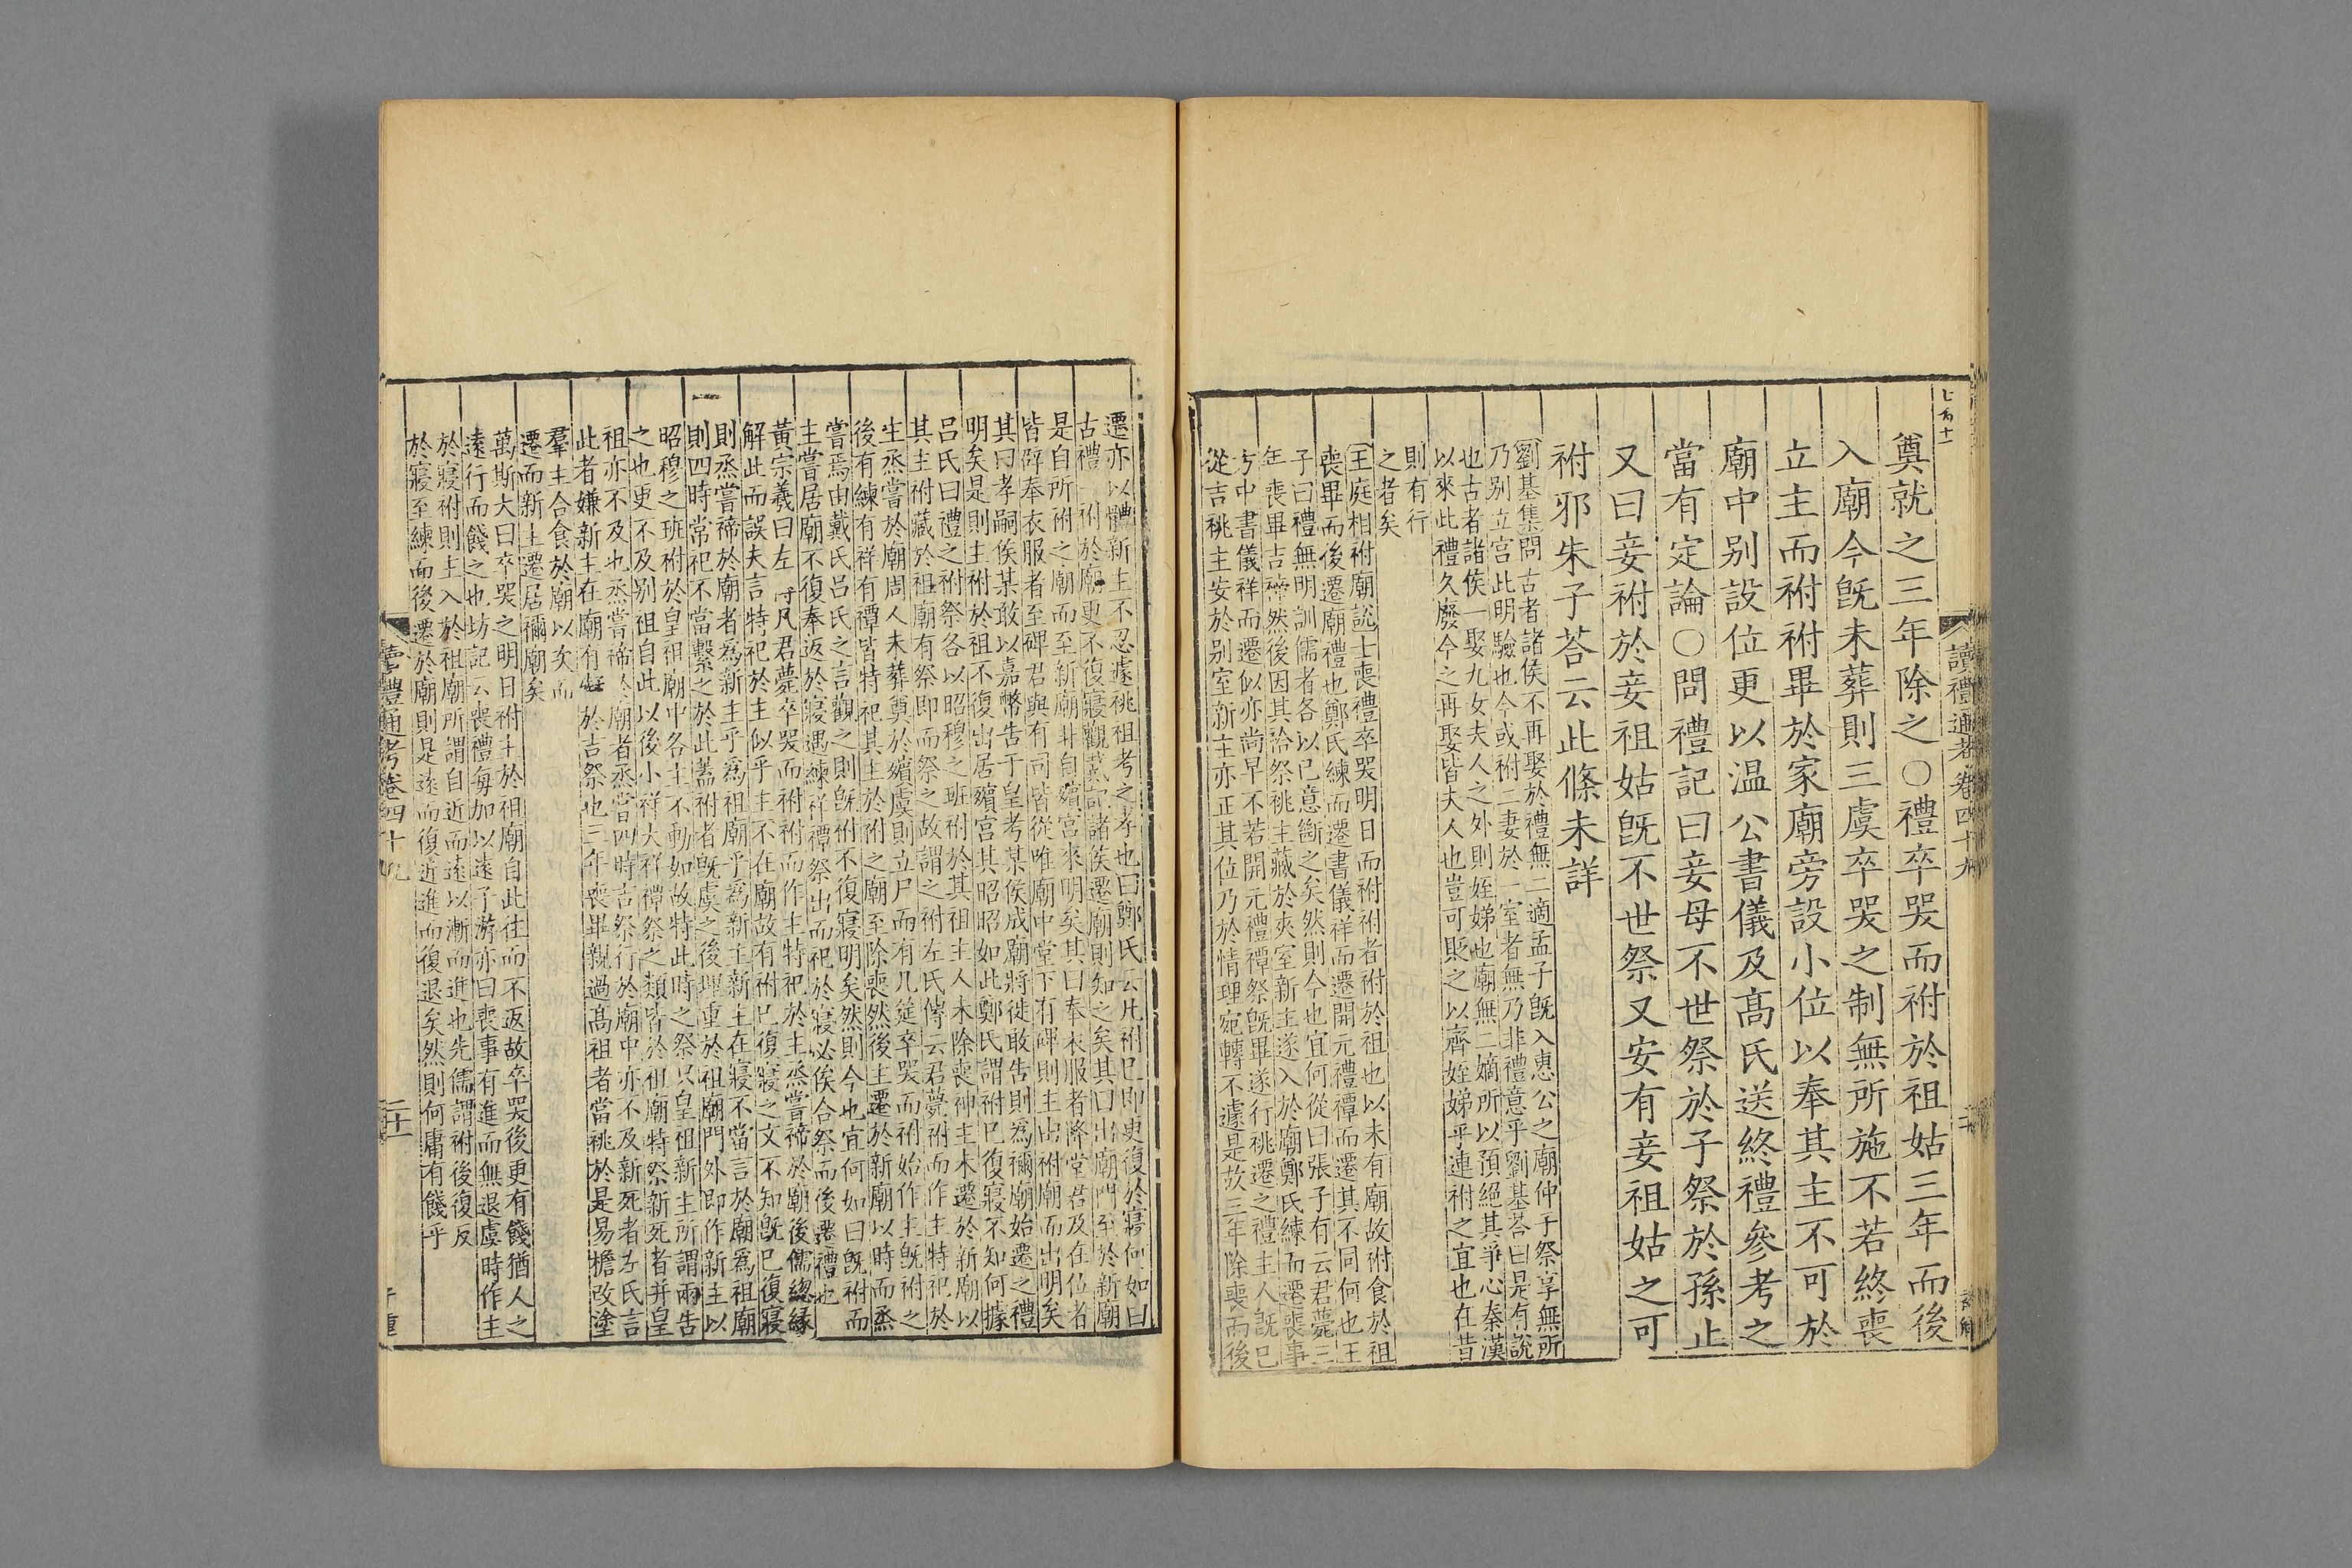 讀禮通考卷四十九
二十
奠就之三年除之○禮卒哭而祔於祖姑三年而後
入廟今旣未葬則三虞卒哭之制無所施不若終喪
立主而祔祔畢於家廟旁設小位以奉其主不可於
廟中别設位更以温公書儀及髙氏送終禮參考之
當有定論○問禮記曰妾母不世祭於子祭於孫止
又曰妾祔於妾祖姑旣不世祭又安有妾祖姑之可
祔邪朱子荅云此條未詳
劉基集問古者諸侯不再娶於禮無二適孟子旣入惠公之廟仲子祭享無所
乃别立宫此明驗也今或祔二妻於一室者無乃非禮意乎劉基荅曰是有說
也古者諸侯一娶九女夫人之外則姪娣也廟無二嫡所以預絕其爭心秦漢
以來此禮久廢今之再娶皆夫人也豈可貶之以齊姪娣乎連祔之宜也在昔
則有行
之者矣
王庭相祔廟說士喪禮卒哭明日而祔祔者祔於祖也以未有廟故祔食於祖
喪畢而後遷廟禮也鄭氏練而遷書儀祥而遷開元禮禫而遷其不同何也王
子曰禮無明訓儒者各以已意斷之矣然則今也宜何從曰張子有云君薨三
年喪畢吉禘然後因其祫祭祧主藏於夾室新主遂入於廟鄭氏練而遷喪事
方中書儀祥而遷似亦尚早不若開元禮禫祭旣畢遂行祧遷之禮主人旣已
從吉祧主安於别室新主亦正其位乃於情理宛轉不遽是故三年除喪而後
遷亦以體新主不忍遽祧祖考之孝也曰鄭氏云凡祔已卽更復於寢何如曰
古禮一祔於廟更不復寢觀戴記諸侯遷廟則知之矣其曰出廟門至於新廟
是自所祔之廟而至新廟幷自殯宫來明矣其曰奉衣服者降堂君及在位者
皆辟奉衣服者至碑君與有司皆從唯廟中堂下有碑則主出祔廟而出明矣
其曰孝嗣侯某敢以嘉幣告于皇考某侯成廟將徙敢告則爲禰廟始遷之禮
明矣是則主祔於祖不復出居殯宫其昭昭如此鄭氏謂祔已復寢不知何據
吕氏曰禮之祔祭各以昭穆之班祔於其祖主人未除喪神主未遷於新廟以
其主祔藏於祖廟有祭卽而祭之故謂之祔左氏傳云君薨祔而作主特祀於
生烝嘗於廟周人未葬奠於殯虞則立尸而有几筵卒哭而祔始作主旣祔之
後有練有祥有禫皆特祀其主於祔之廟至除喪然後主遷於新廟以時而烝
嘗焉由戴氏吕氏之言觀之則旣祔不復寢明矣然則今也宜何如曰旣祔而
主嘗居廟不復奉返於寢遇練祥禫祭出而祀於寢必俟合祭而後遷禮也
黄宗羲曰左 凡君薨卒哭而祔祔而作主特祀於主烝嘗禘於廟後儒總緣
解此而誤夫言特祀於主似乎主不在廟故有祔已復寢之文不知旣已復寢
則烝嘗禘於廟者爲新主乎爲祖廟乎爲新主新主在寢不當言於廟爲祖廟
則四時常祀不當繫之於此蓋祔者旣虞之後埋重於祖廟門外卽作新主以
昭穆之班祔於皇祖廟中各主不動如故特此時之祭只皇祖新主所謂兩告
之也更不及别祖自此以後小祥大祥禫祭之類皆於祖廟特祭新死者并皇
祖亦不及也烝嘗禘於廟者烝嘗四時吉祭行於廟中亦不及新死者左氏言
此者嫌新主在廟有 於吉祭也三年喪畢親過髙祖者當祧於是易檐改塗
羣主合食於廟以矣而
遷而新主遷居禰廟矣
萬斯大曰卒哭之明日祔主於祖廟自此往而不返故卒哭後更有餞猶人之
遠行而餞之也坊記云喪禮每加以遠子游亦曰喪事有進而無退虞時作主
於寢祔則主入於祖廟所謂自近而遠以漸而進也先儒謂祔後復反
於寢至練而後遷於廟則是遠而復近進而復退矣然則何庸有餞乎
讀禮通考卷四十九
二十一